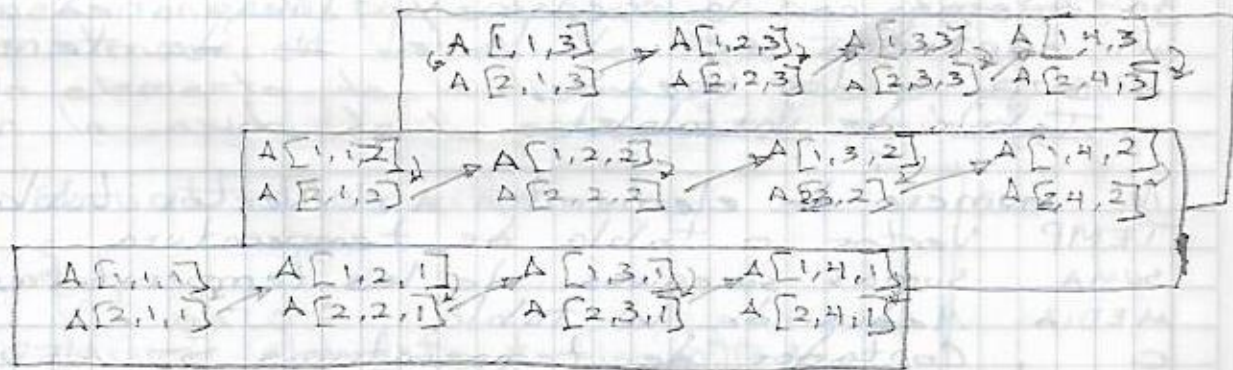 A [1,1,3] A [1,2,3] A [1,3,3] A [1,4,3]
A [2,1,3] A [2,2,3] A [2,3,3] A [2,4,3]
A [1,1,2] A [1,2,2] A [1,3,2] A [1,4,2]
A [2,1,2] A [2,2,2] A [23,2] A [2,4,2]
A [1,1,1] A [1,2,1] A [1,3,1] A [1,4,1]
A [2,1,1] A [2,2,1] A [2,3,1] A [2,4,1]